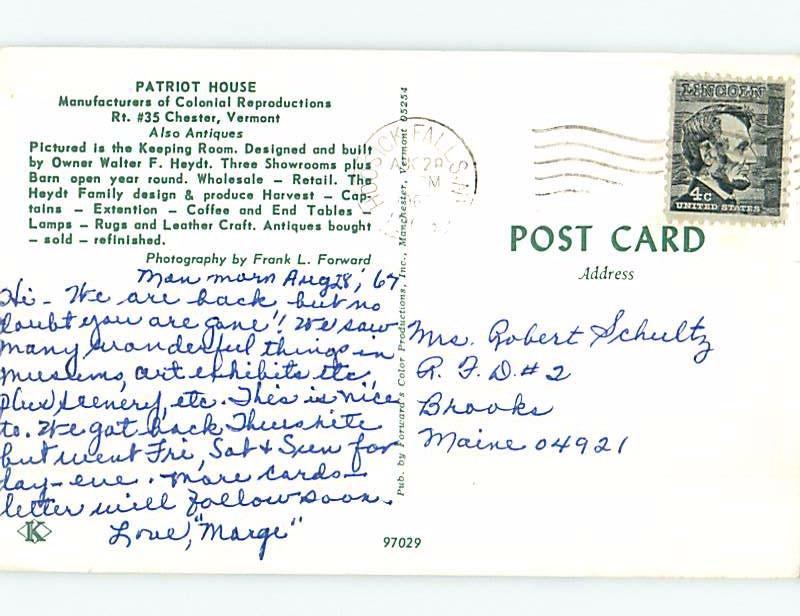 PATRIOT HOUSE
Manufacturers of Colonial Reproductions
Rt. #35 Chester, Vermont
Also Antiques
Pictured is the Keeping Room. Designed and built
by Owner Walter F. Heydt. Three Showrooms plus
Barn open year round. Wholesale — Retail. The
Heydt Family design & produce Harvest — Cap-
tains — Extention — Coffee and End Tables
Lamps — Rugs and Leather Craft. Antiques bought
— sold — refinished.
Photography by Frank L. Forward
Mon morn Aug 28, '67
Hi - We are back but no
doubt you are gone! We saw
many wonderful things in
museums, art exhibits etc.,
plus scenery, etc. This is nice
to. We got back Thurs nite
but went Fri, Sat & Sun for
day-eve. More cards -
letter will follow soon.
Love, "Marge"
K
Pub. by Forward's Color Productions, Inc., Manchester, Vermont 05254
97029
HOOSICK FALLS, N.Y.
AUG 28
LINCOLN
4c
UNITED STATES
POST CARD
Address
Mrs. Robert Schultz
R. F. D. # 2
Brooks
Maine 04921